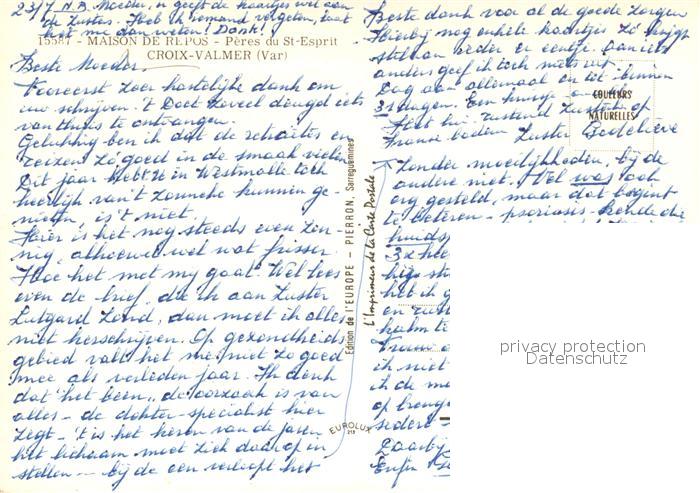 23/7 N.B. Moeder, u geeft de kaartjes wel aan
de Zusters. Heb ik iemand vergeten, laat
het me dan weten! Dank!
15587 - MAISON DE REPOS - Pères du St-Esprit
CROIX-VALMER (Var)
Beste Moeder,
Vooreerst zeer hartelijke dank om
uw schrijven. 't Doet zoveel deugd iets
van thuis te ontvangen.
Gelukkig ben ik dat de retraites en
reizen zo goed in de smaak vielen
Dit jaar hebt ze in Westmalle toch
heerlijk van 't zonneke kunnen ge-
nieten, is 't niet.
Hier is het nog steeds even zon-
nig, alhoewel wel wat frisser.
Hoe het met my gaat. Wel lees
even de brief, die ik aan Zuster
Lutgard zond, dan moet ik alles
niet herschrijven. Op gezondheids
gebied valt het me niet zo goed
mee als verleden jaar. Ik denk
dat 't het been, de oorzaak is van
alles - de dokter-specialist hier
zegt - 't is het keren van de jaren
het lichaam moet zich daar op in
stellen — bij de een verloopt het
Edition de l'EUROPE - PIERRON, Sarreguemines
L'Imprimeur de la Carte Postale
EUROLUX
Beste dank voor al de goede zorgen
Hierbij nog enkele kaartjes. Zo krijgt
anders geef ik toch niets uit.
Dag aan allemaal en tot binnen
3 dagen. Een
COULEURS
NATURELLES
Zuster Godelieve
zonder moeilijkheden, bij de
andere niet. Wel was ook
erg gesteld, maar dat begint
te beteren - psoriasis - kende die
huids
3x
heb ik
en
kalm te
ik niet
ik de
op
Daarbij
privacy protection
Datenschutz